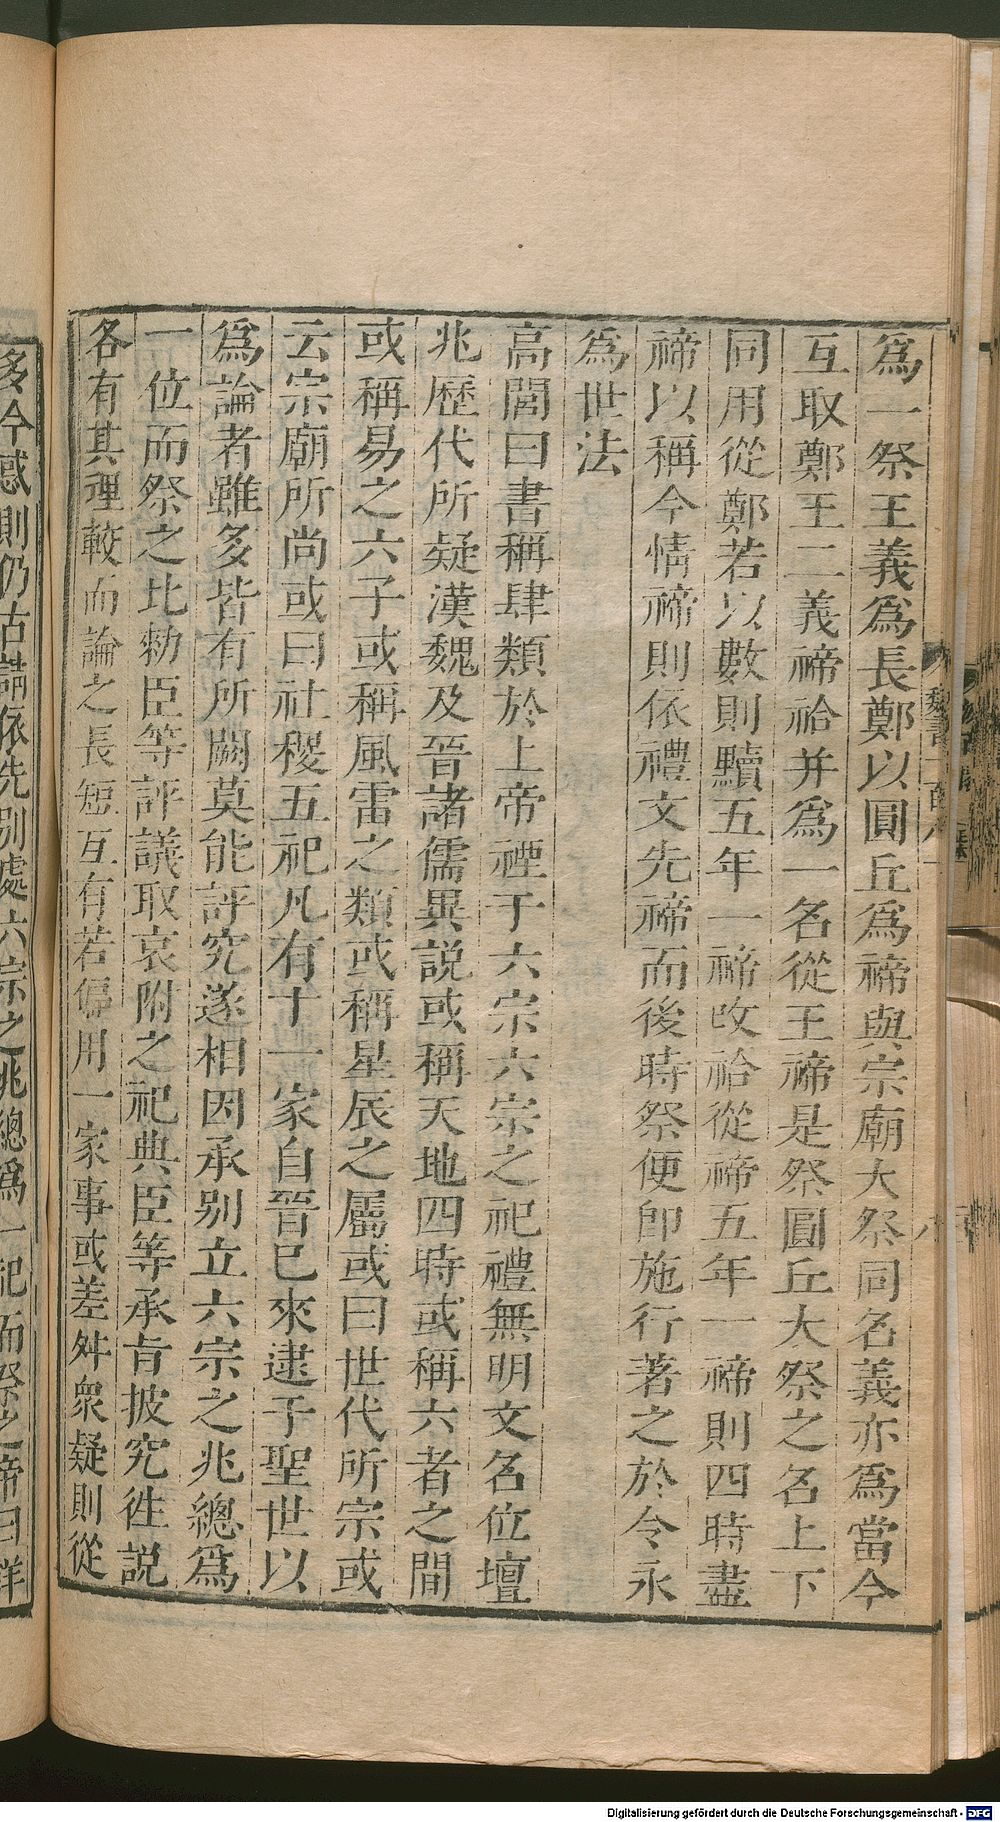 爲一祭王義爲長鄭以圓丘爲禘與宗廟大祭同名義亦爲當今
互取鄭王二義禘祫并爲一名從王禘是祭圓丘大祭之名上下
同用從鄭若以數則黷五年一禘改祫從禘五年一禘則四時盡
禘以稱今情禘則依禮文先禘而後時祭便卽施行著之於令永
爲世法
高閭曰書稱肆類於上帝禋于六宗六宗之祀禮無明文名位壇
兆歷代所疑漢魏及晉諸儒異説或稱天地四時或稱六者之間
或稱易之六子或稱風雷之類或稱星辰之屬或曰世代所宗或
云宗廟所尚或曰社稷五祀凡有十一家自晉已來逮于聖世以
爲論者雖多皆有所闕莫能評究遂相因承别立六宗之兆總爲
一位而祭之比勑臣等評議取衷附之祀典臣等承旨披究徃説
各有其理較而論之長短互有若偏用一家事或差舛衆疑則從
多今惑則仍古請依先别處六宗之兆總爲一祀而祭之帝曰詳
魏書一百八
八
Digitalisierung gefördert durch die Deutsche Forschungsgemeinschaft - DFG